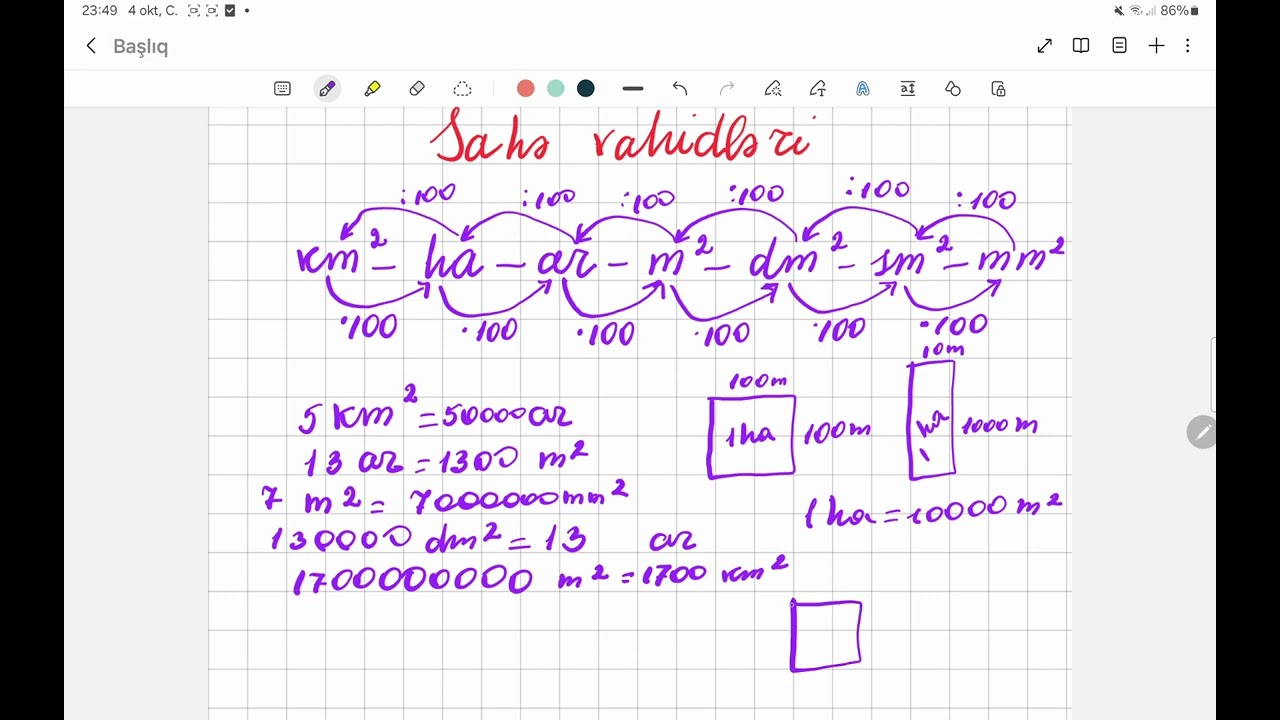 23:49 4 okt, C. 86%
Başlıq
Sahə vahidləri
:100 :100 :100 :100 :100 :100
km² – ha – ar – m² – dm² – sm² – mm²
·100 ·100 ·100 ·100 ·100 ·100
5 km² = 50000 ar
13 ar = 1300 m²
7 m² = 7000000 mm²
130000 dm² = 13 ar
1700000000 m² = 1700 km²
100m
1ha 100m
10m
1 ha 1000m
1ha = 10000 m²